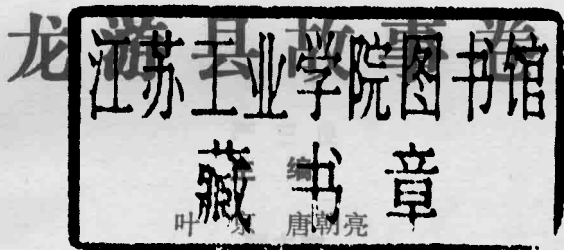 龙游县故事卷
江苏工业学院图书馆
藏书章
主编
叶 唐朝亮